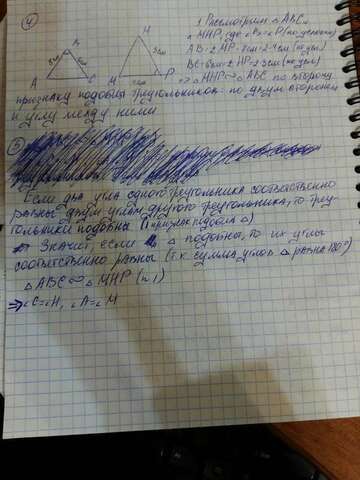 4
1. Рассмотрим △ABC и
△MHP, где ∠B=∠P(по условию)
B
H
8см
6см
3см
A
C
M
P
△MHP ∾ △ABC по второму
признаку подобия треугольников: по двум сторонам
и углу между ними
5
Если два угла одного треугольника соответственно
равны двум углам другого треугольника, то треу-
гольники подобны (1 признак подобия △)
Значит если △ подобны, то их углы
соответственно равны (т.к. сумма углов △ равна 180°)
△ABC ∾ △MHP (п.1)
⇒ ∠C=∠H, ∠A=∠M